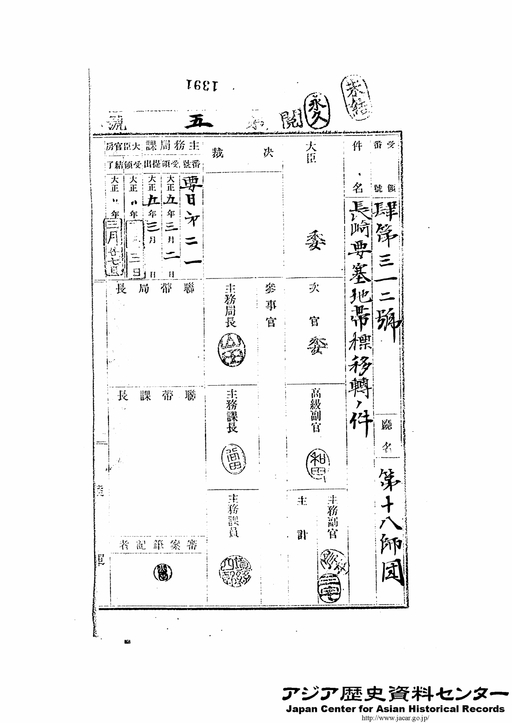 1391
永久
永結
閲 第 五 號
受領番號
肆第三一二號
廳名
第十八師団
件名
長崎要塞地帯標移轉ノ件
大臣
委
次官
委
高級副官
和田
主務副官
主計
三宅
決裁
参事官
主務局長
主務課長
主務課員
主務局課
番號
要日第二一
受領
大正五年三月二日
提出
大正五年三月 日
大臣官房
受領
大正 年 月二日
結了
大正 年三月廿七日
聯帶局長
聯帶課長
審案筆記者
陸軍
アジア歴史資料センター
Japan Center for Asian Historical Records
http://www.jacar.go.jp/